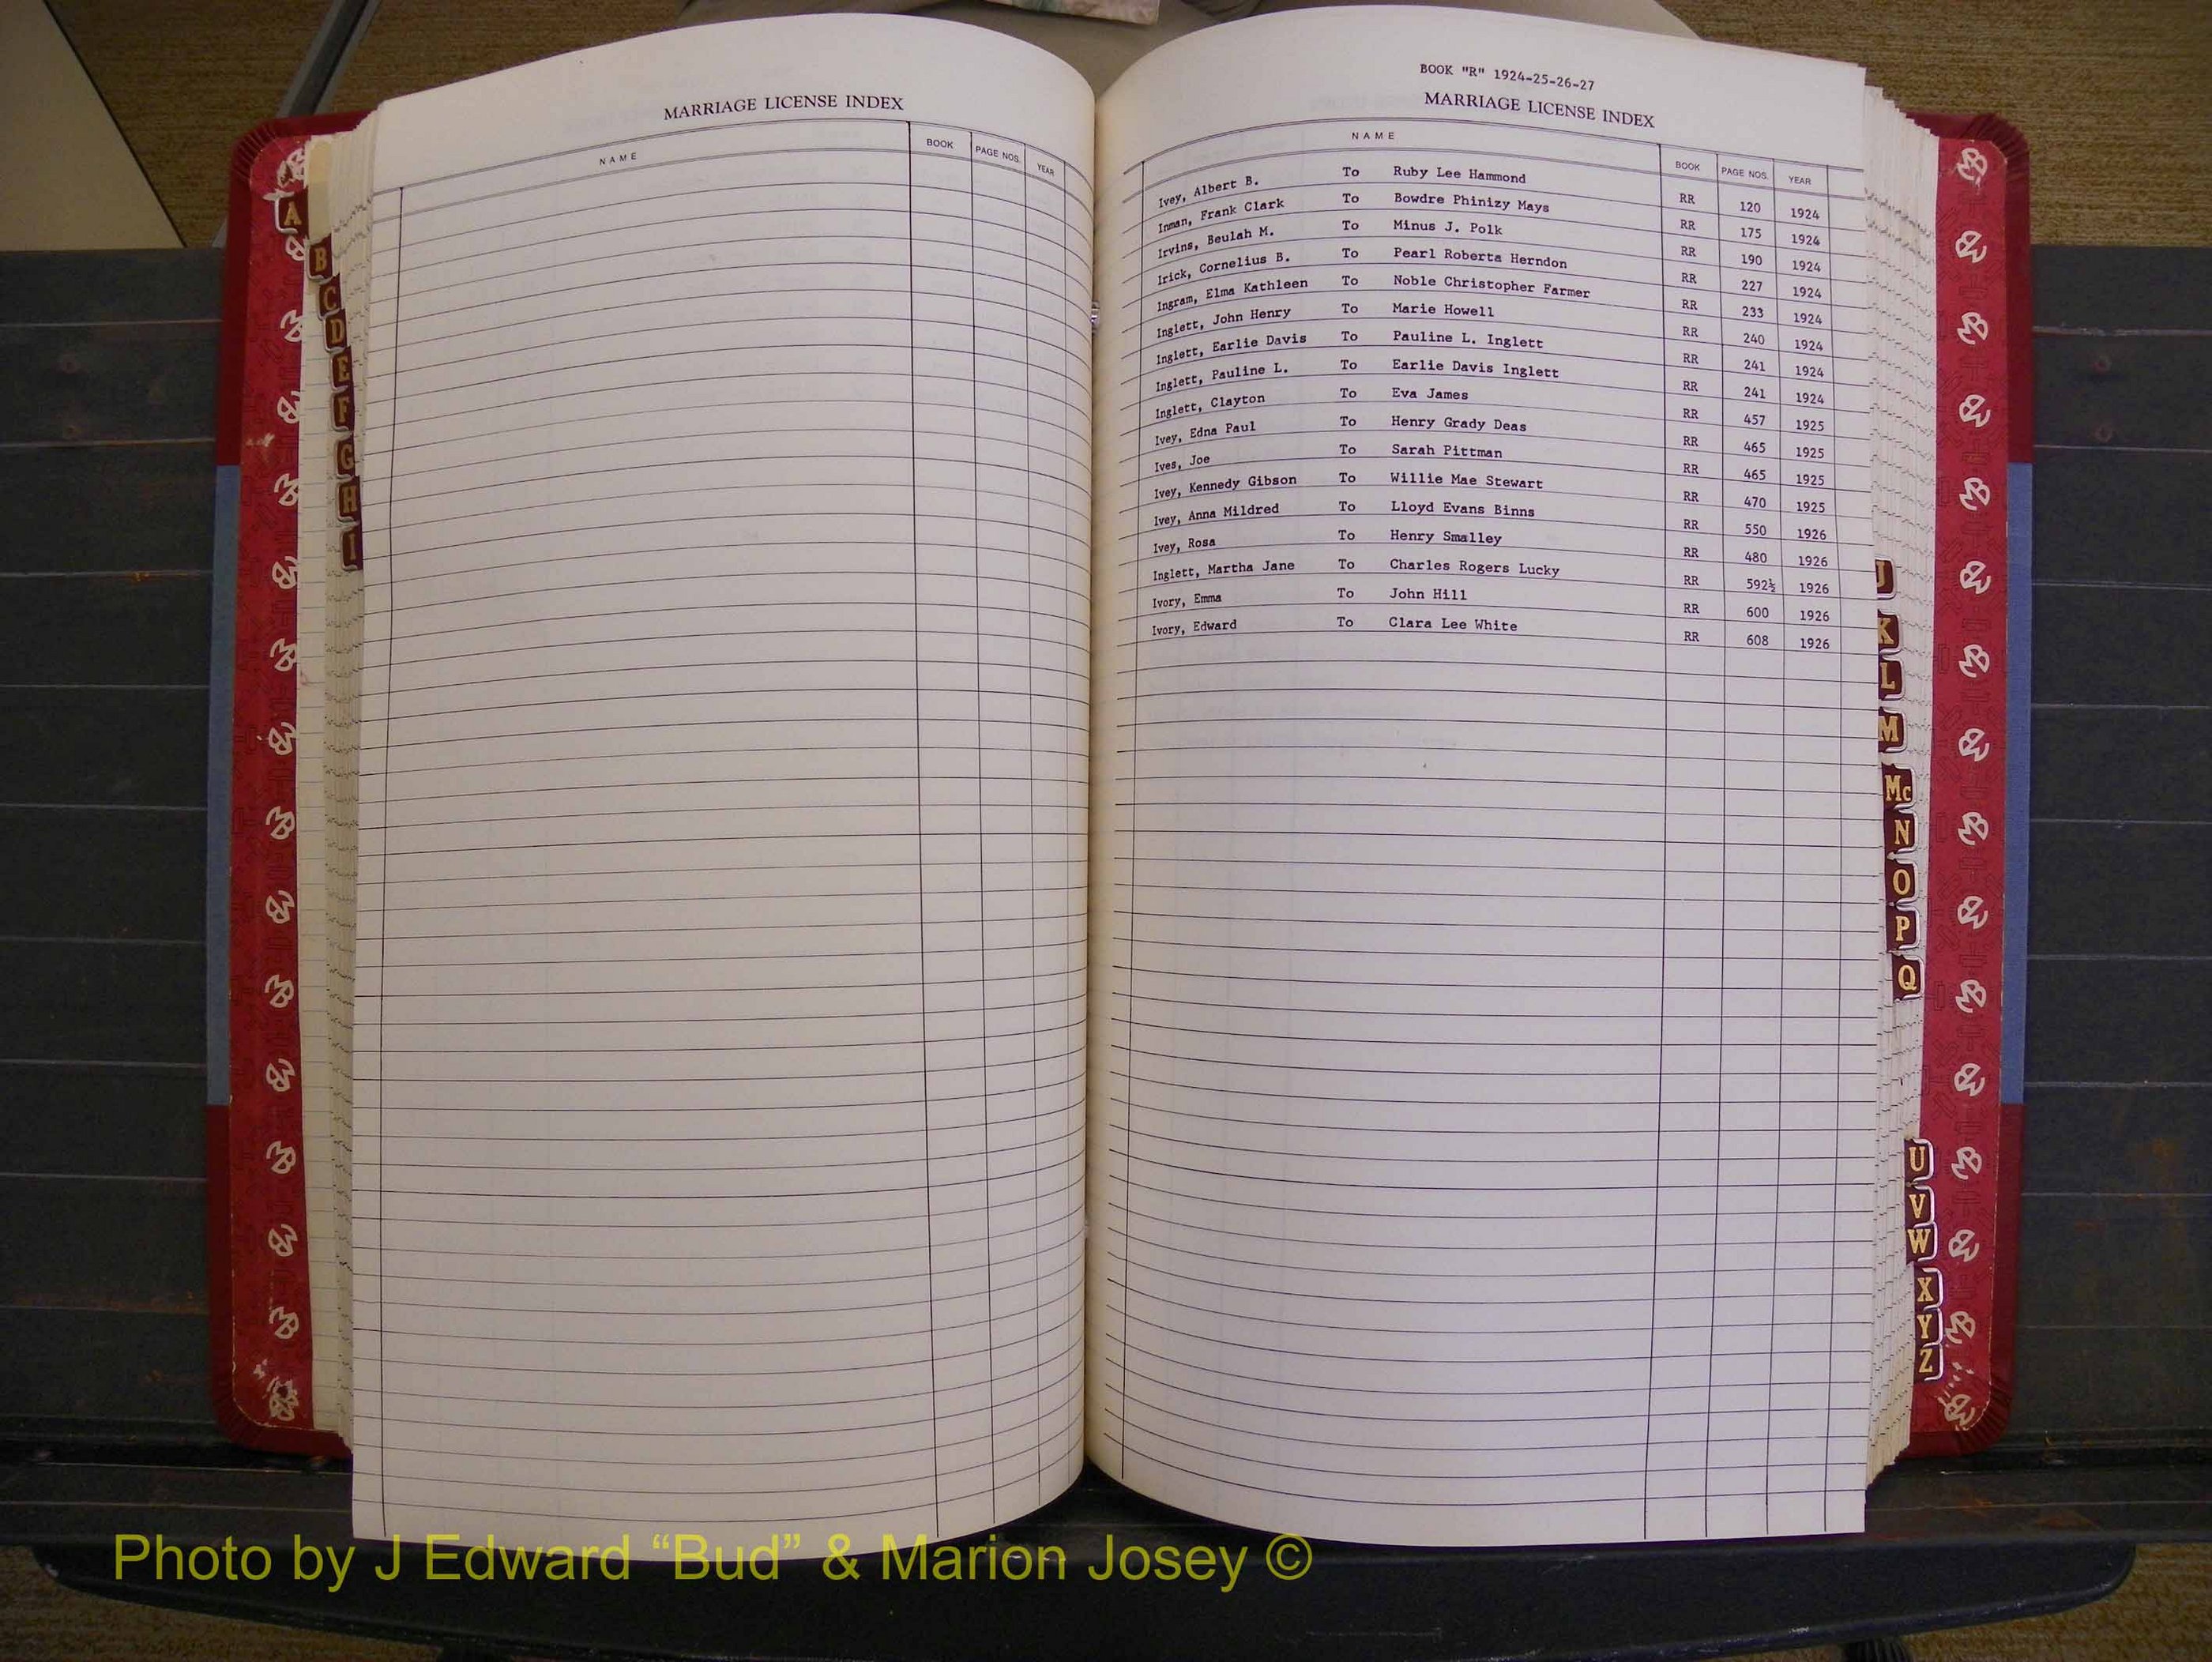 MARRIAGE LICENSE INDEX
NAME BOOK PAGE NOS. YEAR
A
B
C
D
E
F
G
H
I
BOOK "R" 1924-25-26-27
MARRIAGE LICENSE INDEX
NAME BOOK PAGE NOS. YEAR
Ivey, Albert B. To Ruby Lee Hammond RR 120 1924
Inman, Frank Clark To Bowdre Phinizy Mays RR 175 1924
Irvins, Beulah M. To Minus J. Polk RR 190 1924
Irick, Cornelius B. To Pearl Roberta Herndon RR 227 1924
Ingram, Elma Kathleen To Noble Christopher Farmer RR 233 1924
Inglett, John Henry To Marie Howell RR 240 1924
Inglett, Earlie Davis To Pauline L. Inglett RR 241 1924
Inglett, Pauline L. To Earlie Davis Inglett RR 241 1924
Inglett, Clayton To Eva James RR 457 1925
Ivey, Edna Paul To Henry Grady Deas RR 465 1925
Ives, Joe To Sarah Pittman RR 465 1925
Ivey, Kennedy Gibson To Willie Mae Stewart RR 470 1925
Ivey, Anna Mildred To Lloyd Evans Binns RR 550 1926
Ivey, Rosa To Henry Smalley RR 480 1926
Inglett, Martha Jane To Charles Rogers Lucky RR 592½ 1926
Ivory, Emma To John Hill RR 600 1926
Ivory, Edward To Clara Lee White RR 608 1926
J
K
L
M
Mc
N
O
P
Q
U
V
W
X
Y
Z
Photo by J Edward “Bud” & Marion Josey ©